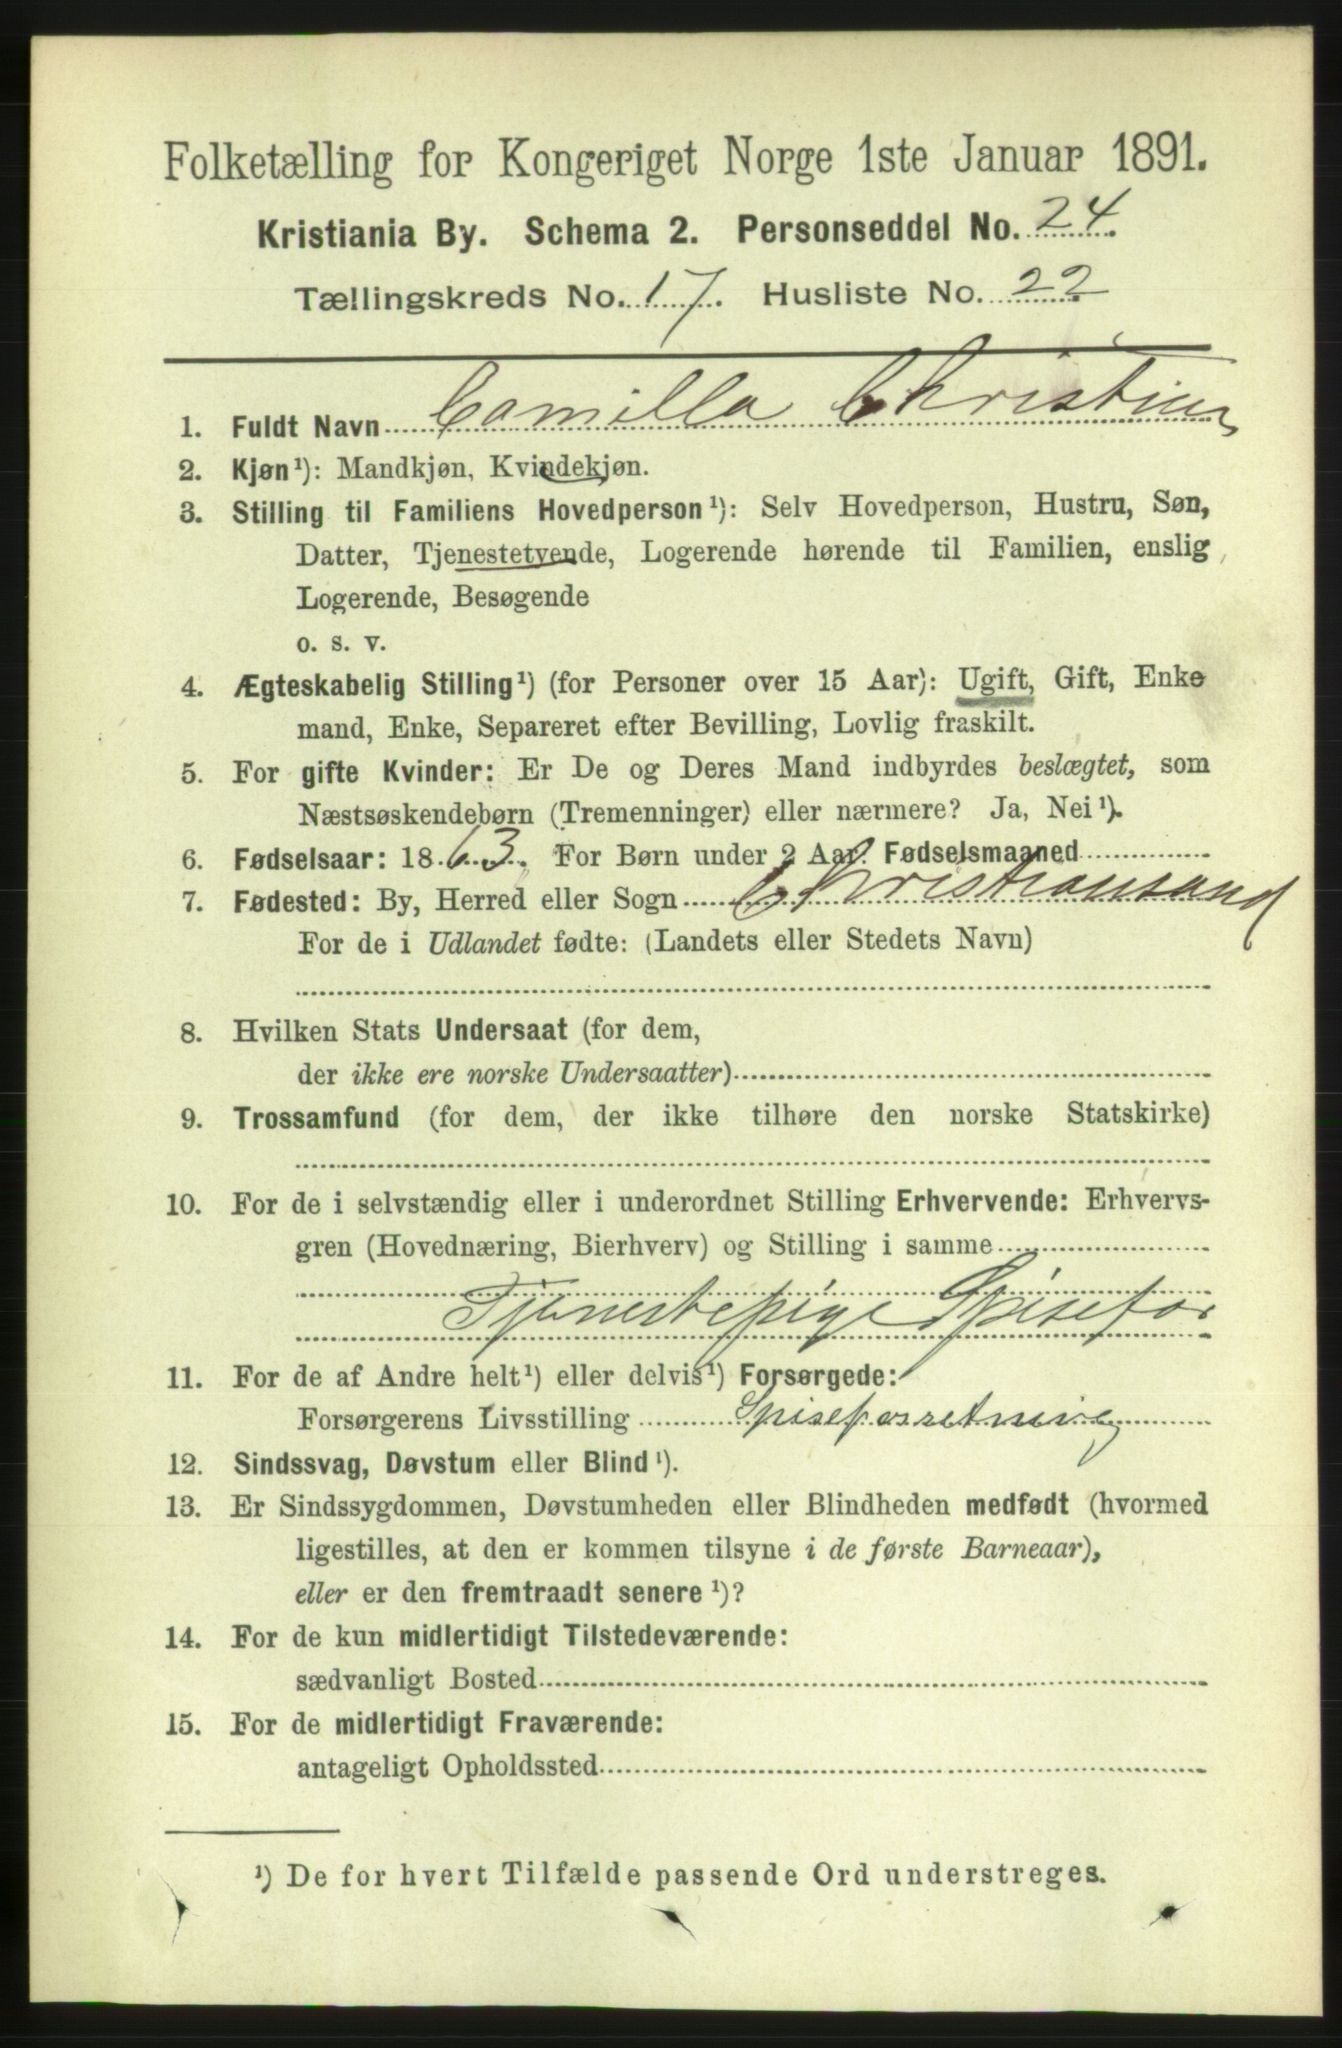 Folketælling for Kongeriget Norge 1ste Januar 1891.
Kristiania By. Schema 2. Personseddel No. 24.
Tællingskreds No. 17. Husliste No. 22
1. Fuldt Navn Camilla
2. Kjøn¹): Mandkjøn, Kvindekjøn.
3. Stilling til Familiens Hovedperson¹): Selv Hovedperson, Hustru, Søn,
Datter, Tjenestetyende, Logerende hørende til Familien, enslig
Logerende, Besøgende
o. s. v.
4. Ægteskabelig Stilling¹) (for Personer over 15 Aar): Ugift, Gift, Enke
mand, Enke, Separeret efter Bevilling, Lovlig fraskilt.
5. For gifte Kvinder: Er De og Deres Mand indbyrdes beslægtet, som
Næstsøskendebørn (Tremenninger) eller nærmere? Ja, Nei¹).
6. Fødselsaar: 1863. For Børn under 2 Aar: Fødselsmaaned
7. Fødested: By, Herred eller Sogn Christiansand
For de i Udlandet fødte: (Landets eller Stedets Navn)
8. Hvilken Stats Undersaat (for dem,
der ikke ere norske Undersaatter)
9. Trossamfund (for dem, der ikke tilhøre den norske Statskirke)
10. For de i selvstændig eller i underordnet Stilling Erhvervende: Erhvervs-
gren (Hovednæring, Bierhverv) og Stilling i samme
Tjenestepige Spisefor
11. For de af Andre helt¹) eller delvis¹) Forsørgede:
Forsørgerens Livsstilling Spiseforretning
12. Sindssvag, Døvstum eller Blind¹).
13. Er Sindssygdommen, Døvstumheden eller Blindheden medfødt (hvormed
ligestilles, at den er kommen tilsyne i de første Barneaar),
eller er den fremtraadt senere¹)?
14. For de kun midlertidigt Tilstedeværende:
sædvanligt Bosted
15. For de midlertidigt Fraværende:
antageligt Opholdssted
¹) De for hvert Tilfælde passende Ord understreges.